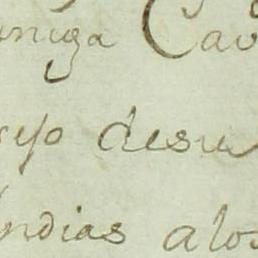 uniga Cav
ejo desu
ndias alos